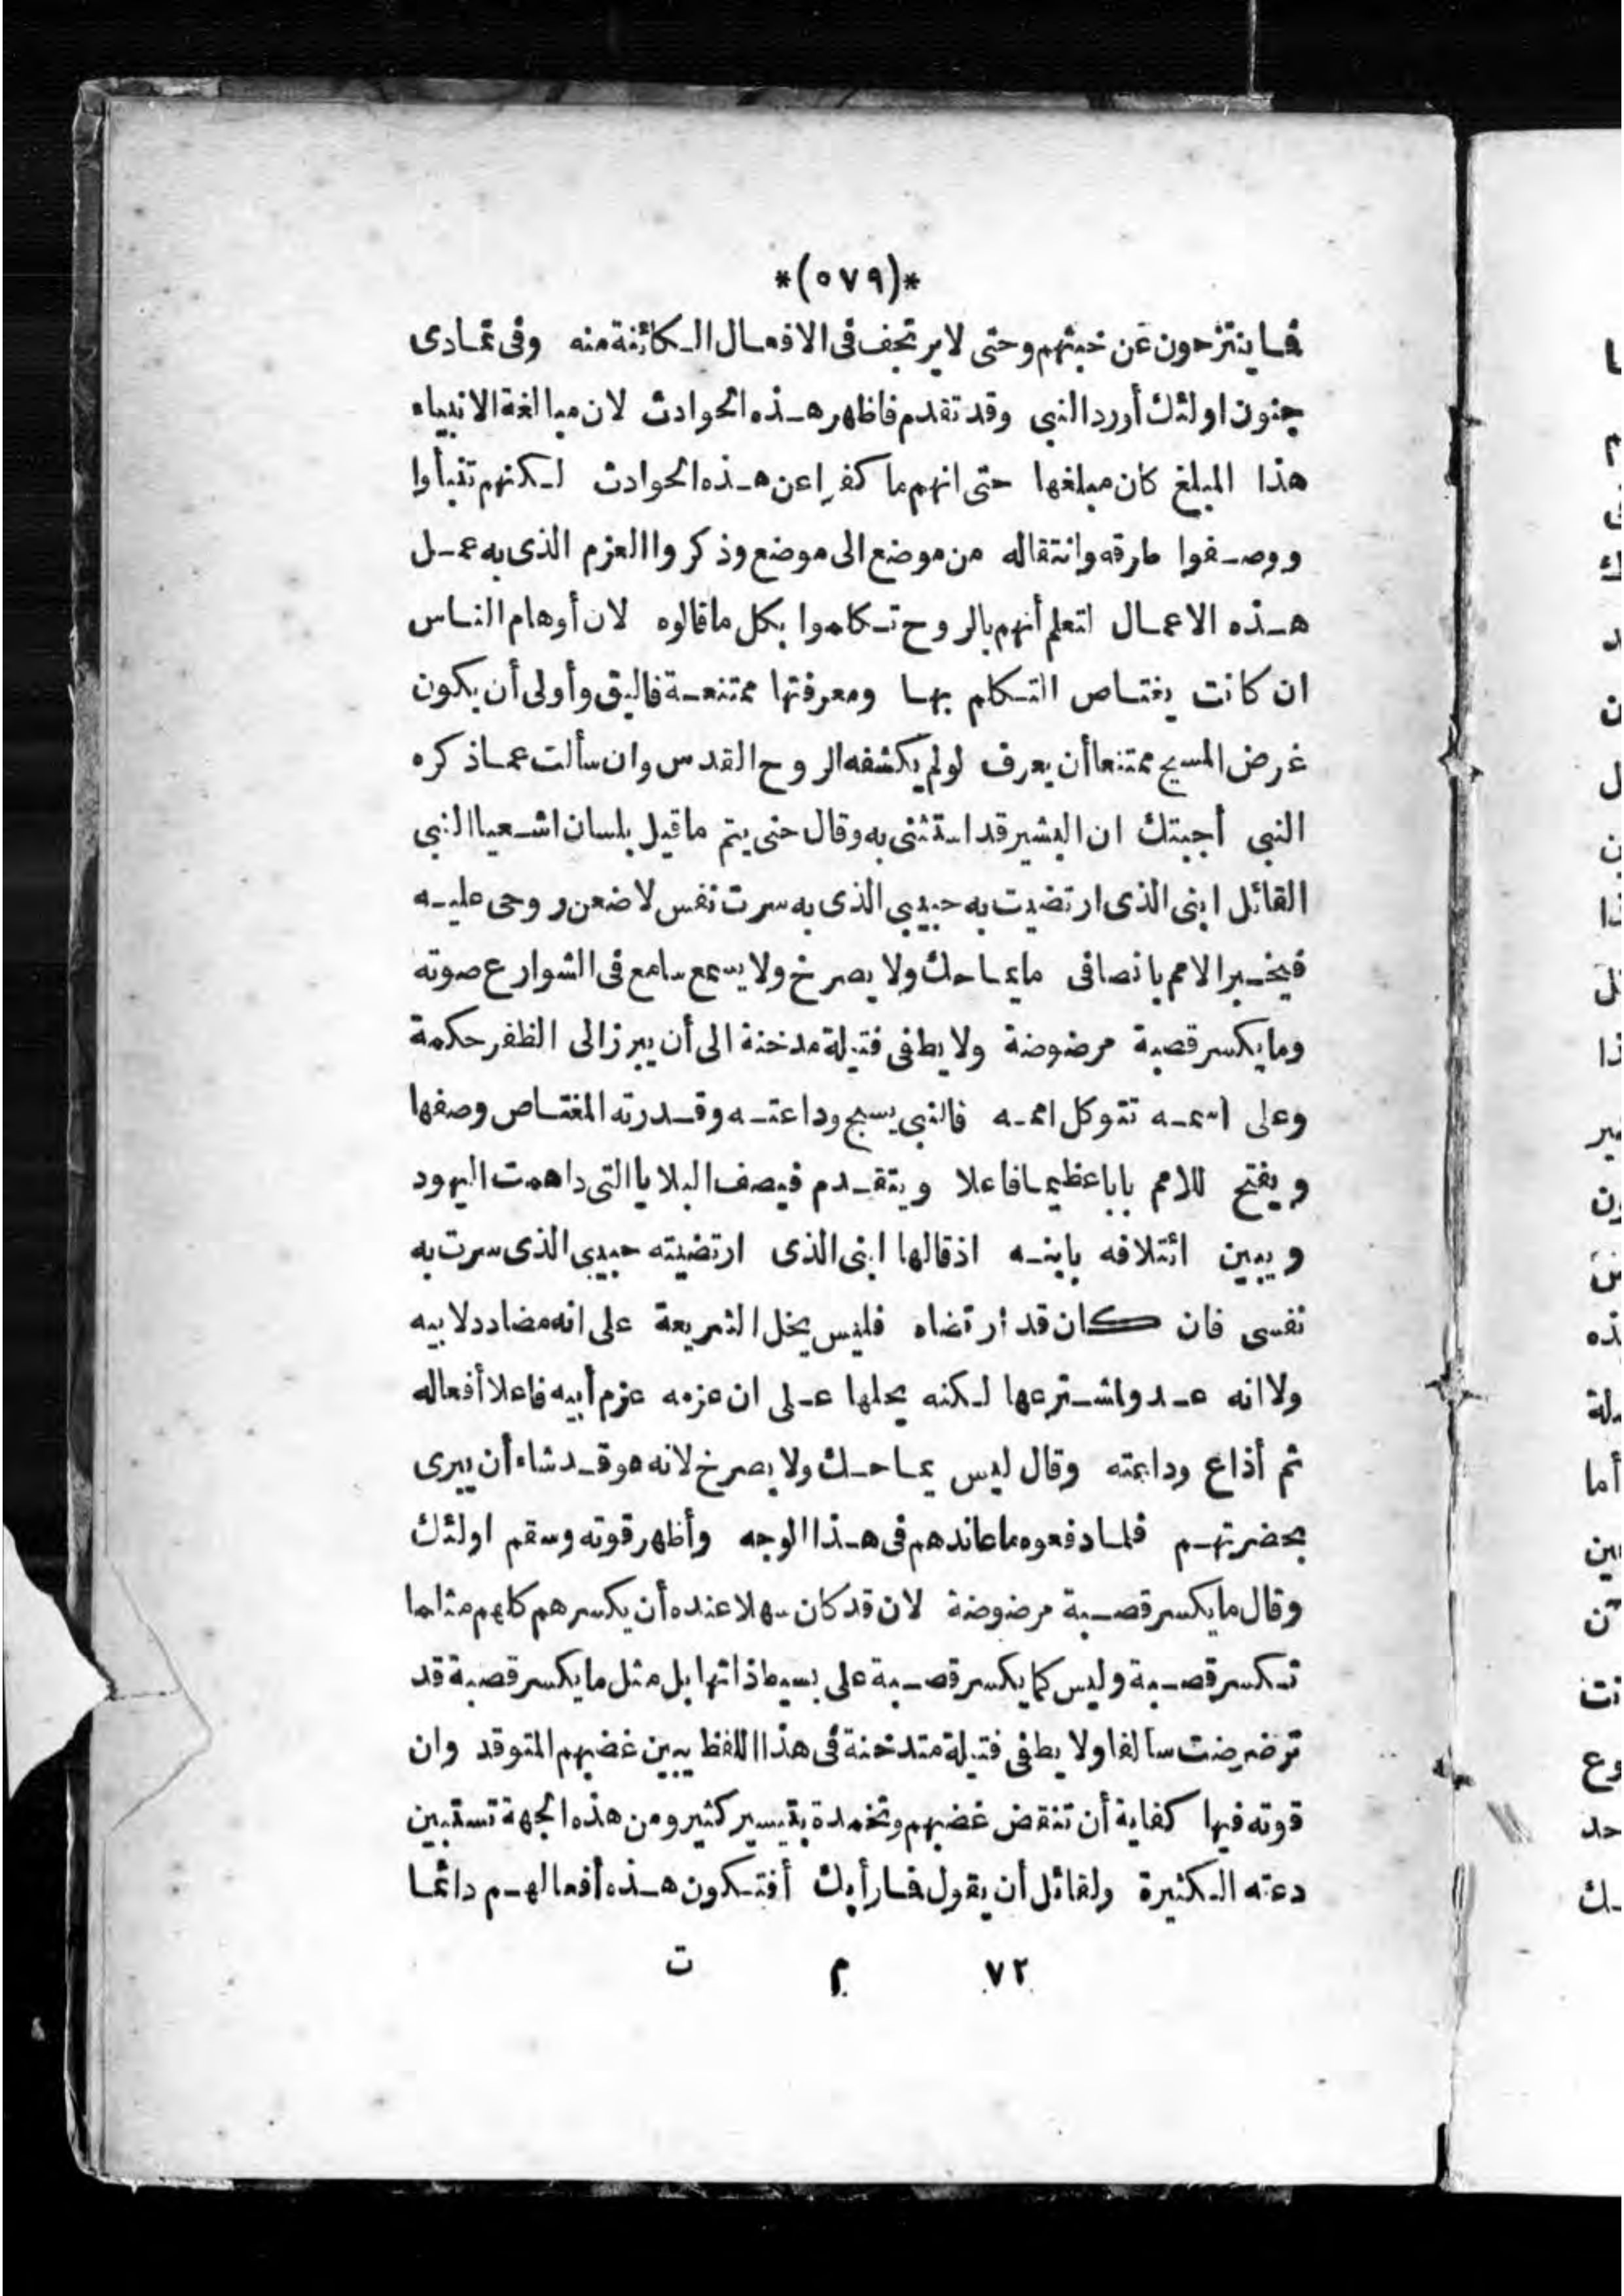 *(٥٧٩)*
فما ينتزحون عن خبثهم وحتى لا يرتجف فى الافعال الكائنة منه وفى تمادى
جنون اولئك أورد النبى وقد تقدم فاظهر هذه الحوادث لان مبالغة الانبياء
هذا المبلغ كان مبلغها حتى انهم ما كفرا عن هذه الحوادث لكنهم تنبأوا
ووصفوا طرقه وانتقاله من موضع الى موضع وذكروا العزم الذى به عمل
هذه الاعمال لتعلم أنهم بالروح تكاموا بكل ما قالوه لان أوهام الناس
ان كانت يغتاص التكلم بها ومعرفتها ممتنعة فاليق وأولى أن يكون
غرض المسيح ممتنعا أن يعرف لو لم يكشفه الروح القدس وان سألت عما ذكره
النبى أجبتك ان البشير قد استثنى به وقال حتى يتم ما قيل بلسان اشعيا النبى
القائل ابنى الذى ارتضيت به حبيبى الذى به سرت نفس لاضعن روحى عليه
فيخبر الامم بانصافى ما يماحك ولا يصرخ ولا يسمع سامع فى الشوارع صوته
وما يكسر قصبة مرضوضة ولا يطفى فتيلة مدخنة الى أن يبرز الى الظفر حكمة
وعلى اسمه تتوكل اممه فالنبى يسبح وداعته وقدرته المغتاص وصفها
ويفتح للامم بابا عظيما فاعلا ويتقدم فيصف البلايا التى داهمت اليهود
ويبين ائتلافه بابنه اذ قالها ابنى الذى ارتضيته حبيبى الذى سرت به
نفسى فان كان قد ارتضاه فليس يخل الشريعة على انه مضادد لابيه
ولا انه عدو اشترعها لكنه يحلها على ان عزمه عزم أبيه فاعلا أفعاله
ثم أذاع وداعته وقال ليس يماحك ولا يصرخ لانه هو قد شاء أن يبرى
بحضرتهم فلما دفعوه ما عاندهم فى هذا الوجه وأظهر قوته وسقم اولئك
وقال ما يكسر قصبة مرضوضة لان قد كان سهلا عنده أن يكسرهم كلهم مثلما
تكسر قصبة وليس كما يكسر قصبة على بسيط ذاتها بل مثل ما يكسر قصبة قد
ترضرضت سالفا ولا يطفى فتيلة متدخنة فى هذا اللفظ يبين غضبهم المتوقد وان
قوته فيها كفاية أن تنقض غضبهم وتخمده بتيسير كثير ومن هذه الجهة تستبين
دعته الكثيرة ولقائل أن يقول فما رأيك أفتكون هذه أفعالهم دائما
٧٢ م ت